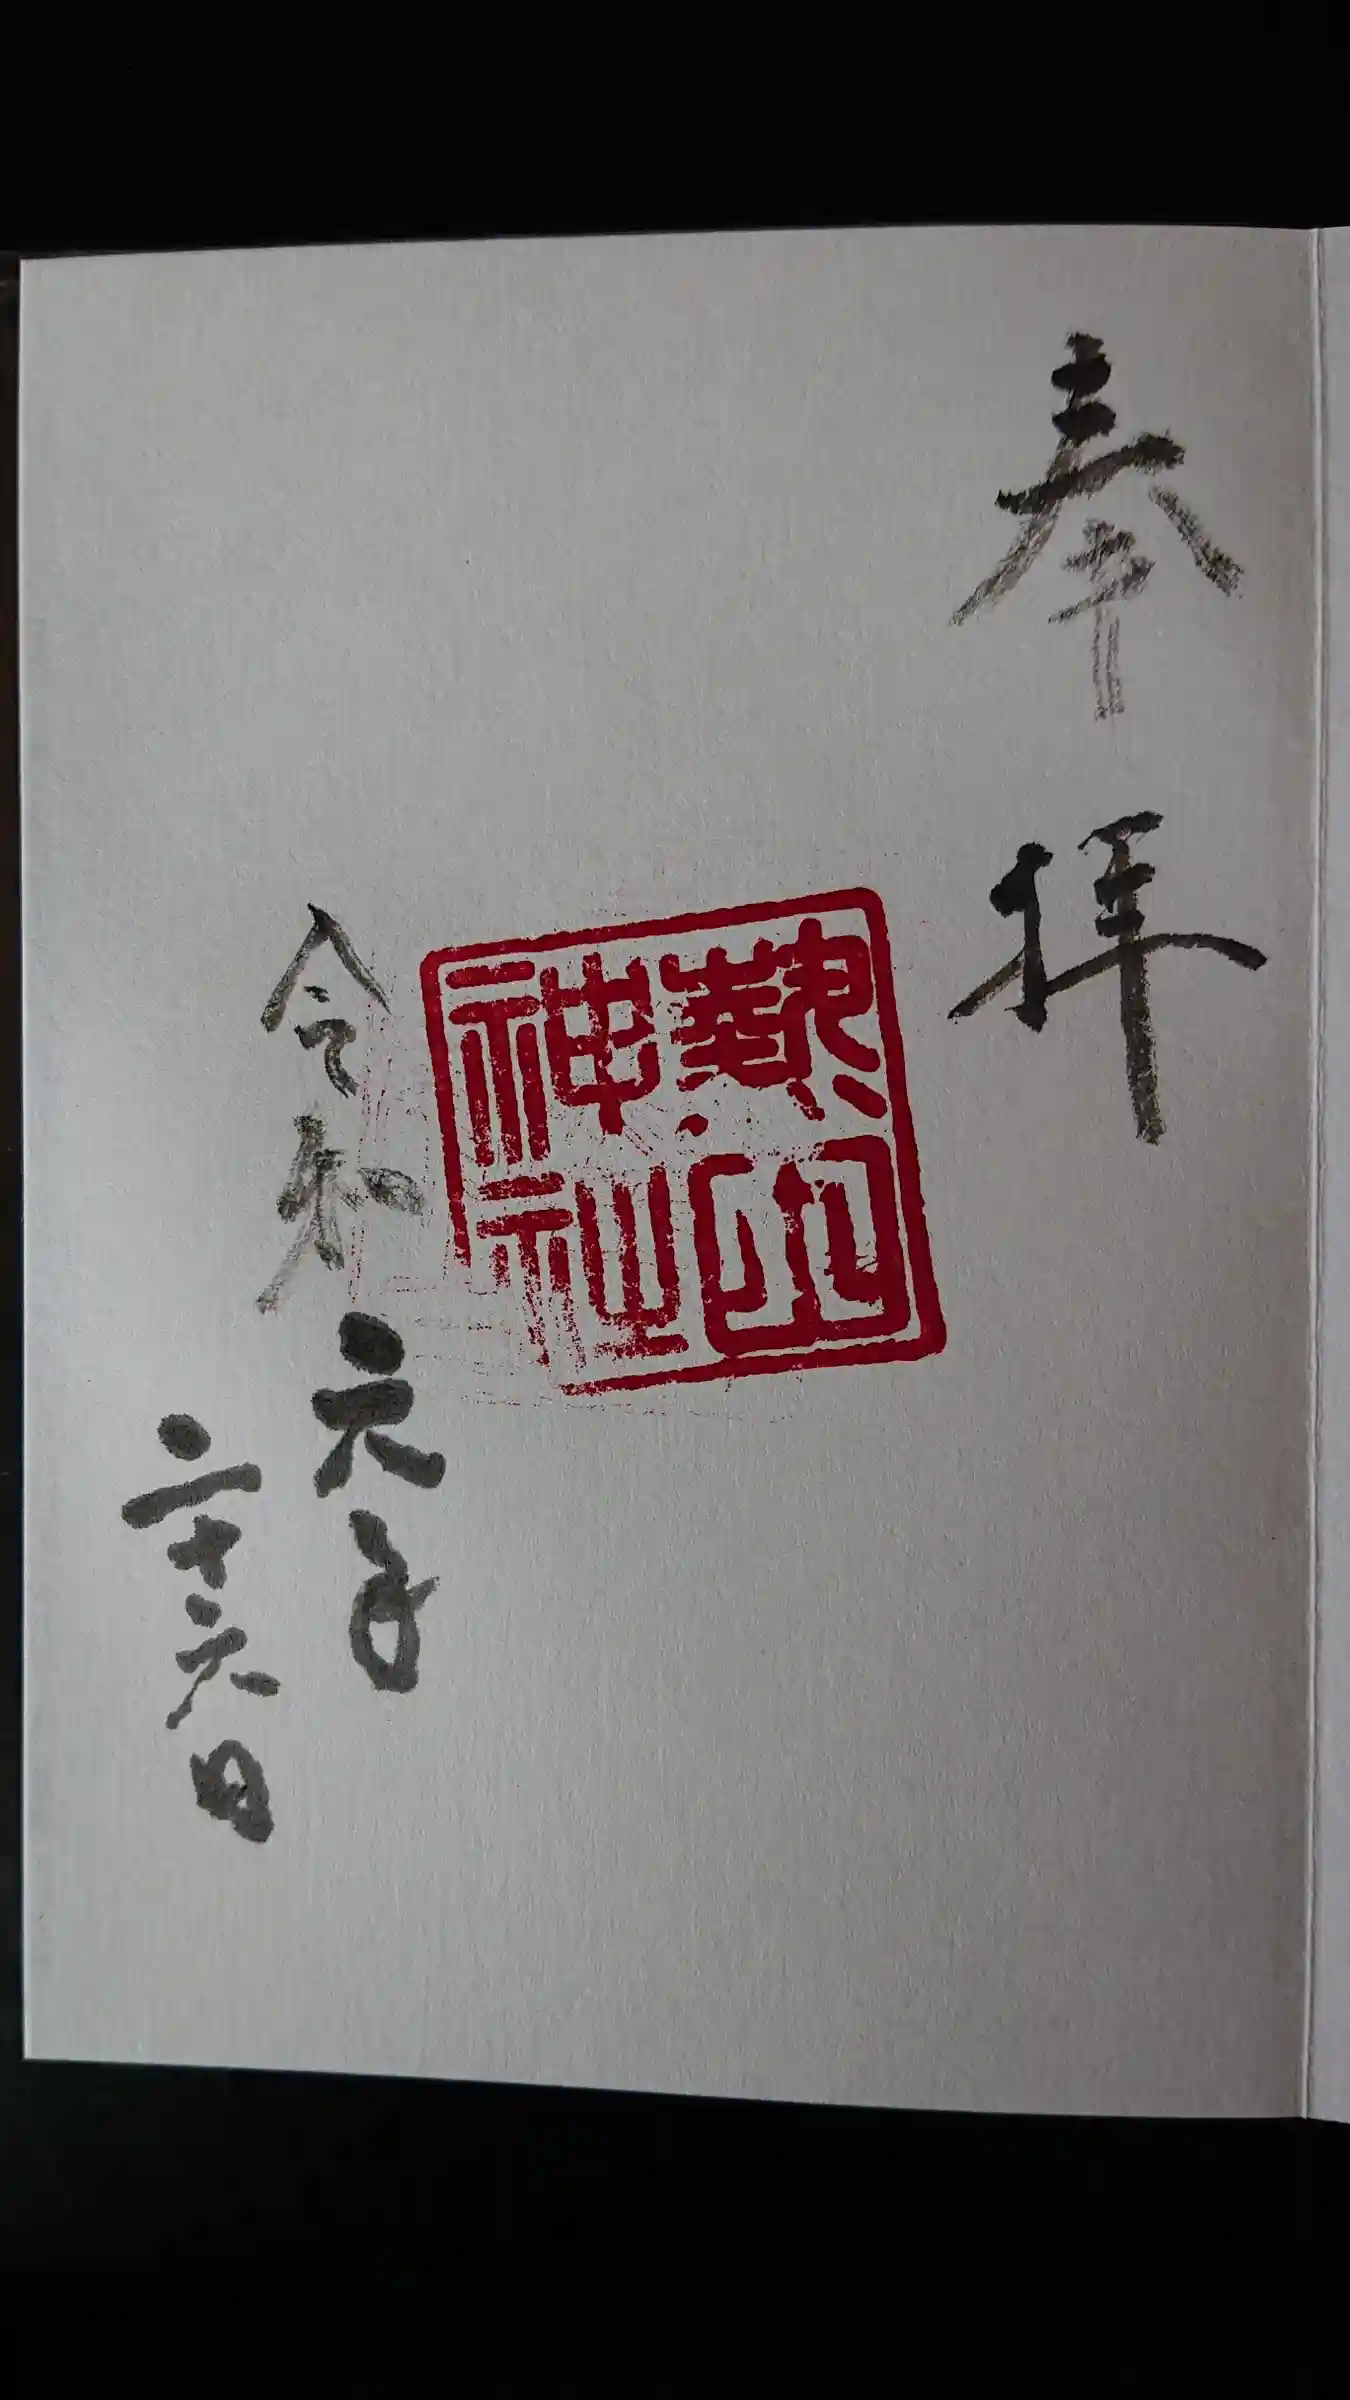 奉拝
熱
神社
令和元年
二十六日